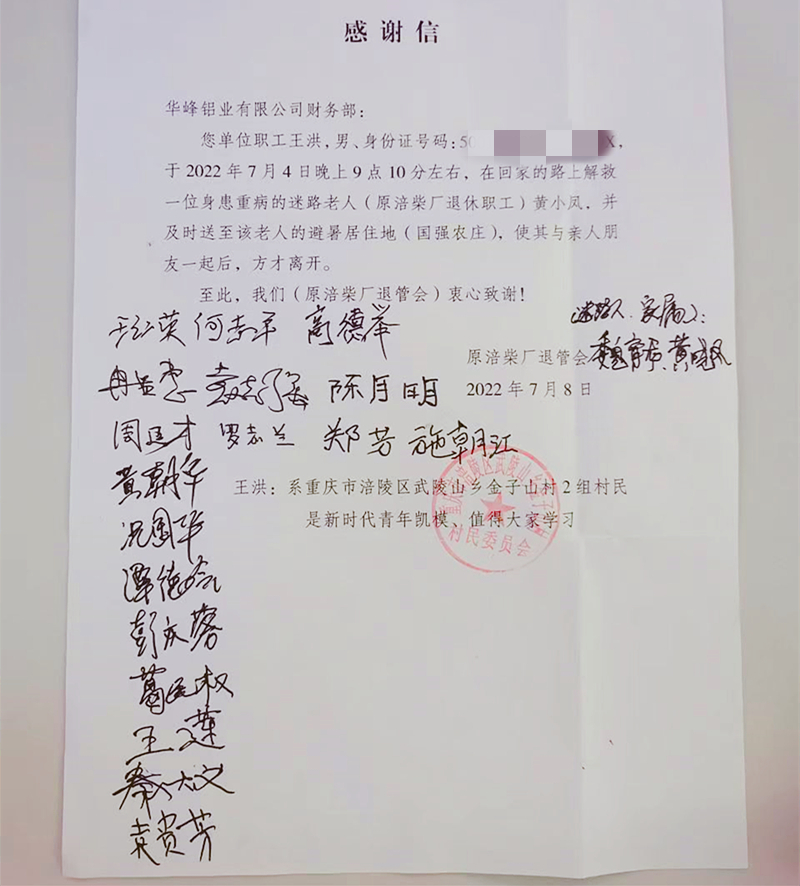 感谢信
华峰铝业有限公司财务部：
您单位职工王洪，男、身份证号码：50 X，
于 2022 年 7 月 4 日晚上 9 点 10 分左右，在回家的路上解救
一位身患重病的迷路老人（原涪柴厂退休职工）黄小凤，并
及时送至该老人的避暑居住地（国强农庄），使其与亲人朋
友一起后，方才离开。
至此，我们（原涪柴厂退管会）衷心致谢！
迷路人、家属人：
高德举
原涪柴厂退管会
2022 年 7 月 8 日
陈月明
罗志兰 郑芳 施朝江
黄朝华
王洪：系重庆市涪陵区武陵山乡金子山村 2 组村民
是新时代青年凯模、值得大家学习
重庆市涪陵区武陵山乡金子山村
村民委员会
况国华
秦大文
袁贵芳